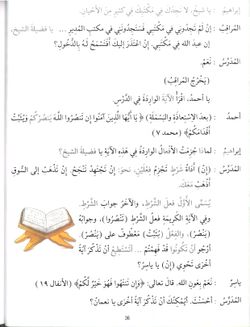 إبراهيم : يا شيخ، لا نجدك في مكتبك في كثير من الأحيان.
المراقب : إِنْ لَمْ تَجِدُونِي فِي مَكْتَبِي فَسَتَجِدُونَنِي فِي مَكْتَبِ المُدِيرِ ... يا فضيلةَ الشيخ،
إن عبدَ الله في مكتبي. إِنِ اعْتَذَرَ إليك أَفَتَسْمَحُ لَهُ بِالدُّخُولِ؟
المدَرِّسُ : نَعَمْ.
(يَخْرُجُ المُرَاقِبُ)
يا أحمدُ، اقْرَأْ الآيَةَ الوارِدَةَ فِي الدَّرْسِ
أحمدُ : (بعدَ الاسْتِعَاذَةِ والبَسْمَلَةِ) ﴿ يَا أَيُّهَا الَّذِينَ آمَنُوا إِن تَنصُرُوا اللَّهَ يَنصُرْكُمْ وَيُثَبِّتْ
أَقْدَامَكُمْ﴾ (محمد ٧)
إبراهيمُ : لماذا جُزِمَتْ الأَفْعَالُ الوارِدَةُ فِي هَذِهِ الآيَةِ يا فَضِيلَةَ الشيخِ؟
المدَرِّسُ : (إِنْ) أَدَاةُ شَرْطٍ تَجْزِمُ فِعْلَيْنِ، نَحْوُ: إِنْ تَجْتَهِدْ تَنْجَحْ. إِنْ تَذْهَبْ إِلَى السُّوقِ
أَذْهَبْ مَعَكَ.
يُسَمَّى الأَوَّلُ فِعْلَ الشَّرْطِ، والآخَرُ جَوَابَ الشَّرْطِ.
وفي الآيَةِ الكَرِيمَةِ فِعْلُ الشَّرْطِ (تَنْصُرُوا)، وجوابُهُ
(يَنْصُرْ)، والفِعْلُ (يُثَبِّتْ) مَعْطُوفٌ على (يَنْصُرْ).
أَرْجُو أَنْ تَكُونُوا قَدْ فَهِمْتُمْ ... أَتَسْتَطِيعُ أَنْ تَذْكُرَ آيَةً
أُخْرَى تَحْوِي (إِنْ) يا ياسِرُ؟
ياسرٌ : نَعَمْ بِعَوْنِ اللهِ. قال تعالى: ﴿وَإِن تَنتَهُوا فَهُوَ خَيْرٌ لَّكُمْ﴾ (الأنفال ١٩)
المدَرِّسُ : أَحْسَنْتَ. أَيُمْكِنُكَ أَنْ تَذْكُرَ آيَةً أُخْرَى يا نعمانُ؟